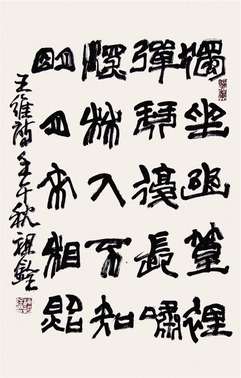 獨坐幽篁裡
彈琴復長嘯
深林人不知
明月來相照
王維詩壬午秋